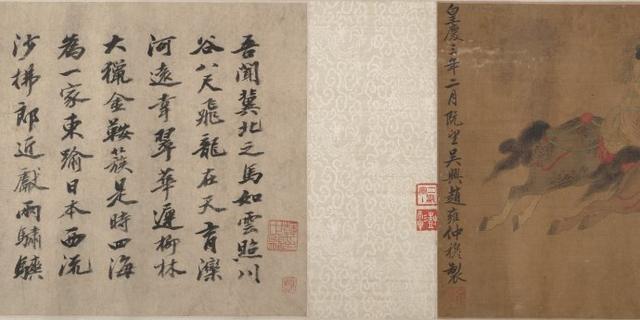 皇慶三年二月既望吳興趙雍仲穆製
吾聞冀北之馬如雲照川
谷八尺飛龍在天育灤
河遠幸翠華遲柳林
大獵金鞍簇是時四海
為一家東踰日本西流
沙拂郎近獻兩驌驦